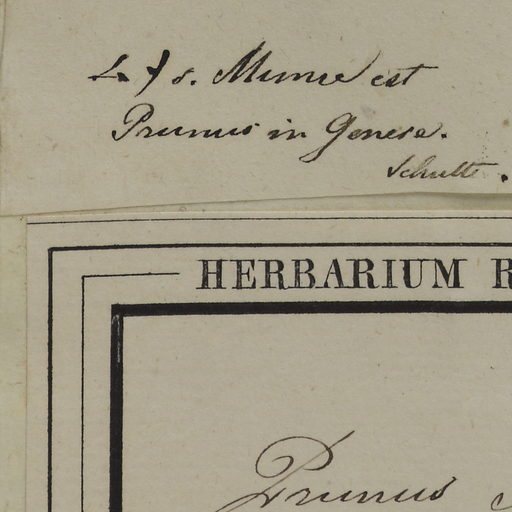 s. Mume est
Prunus in Genere.
Schult.
HERBARIUM R
Prunus